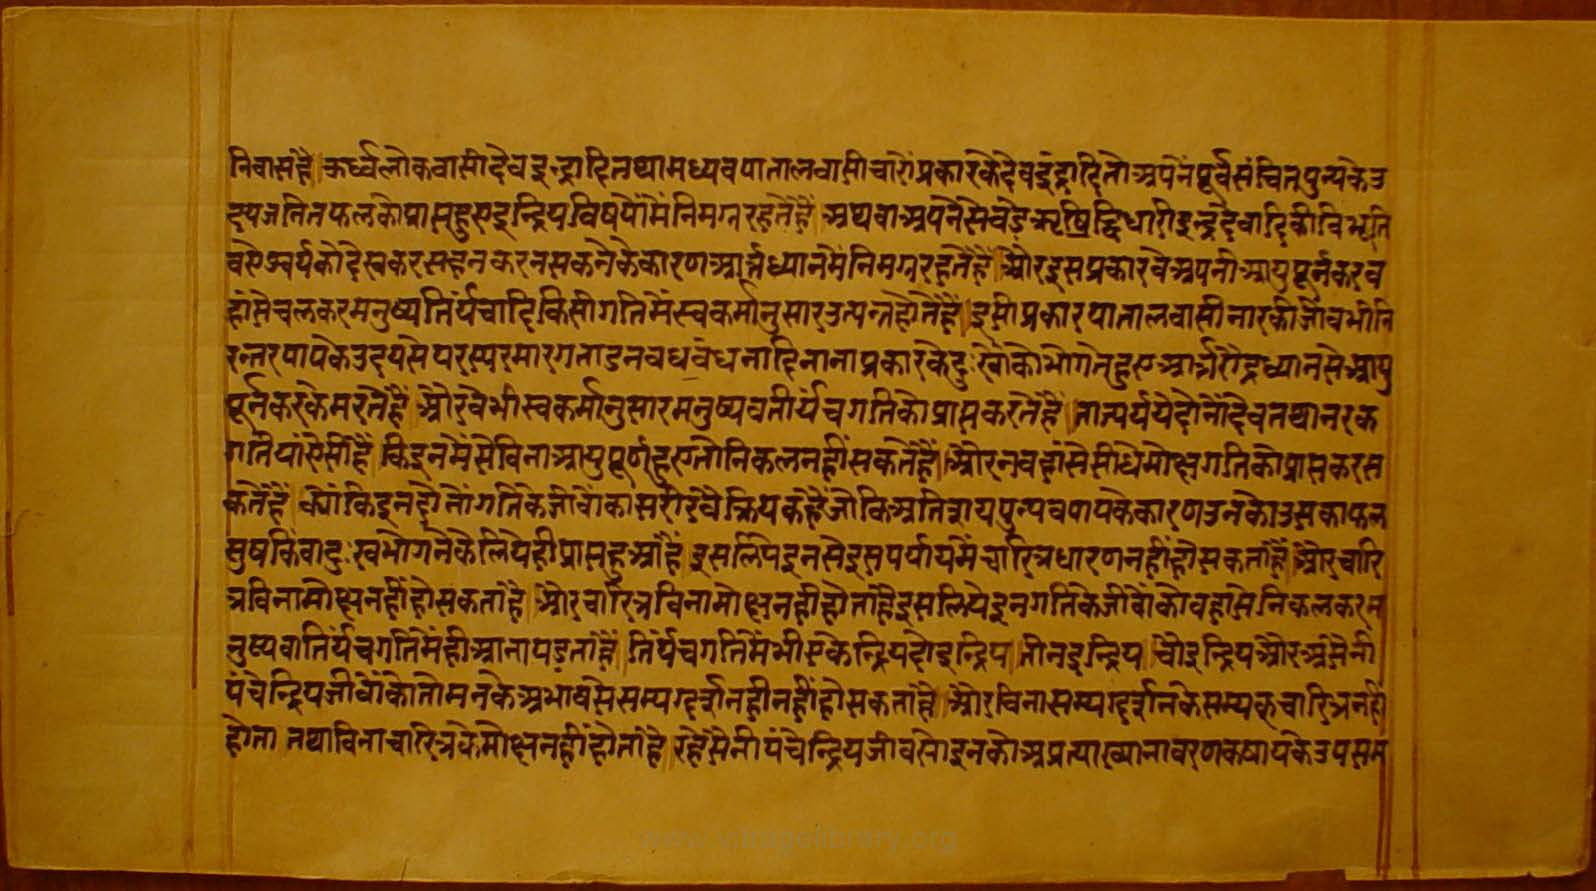 निवास है। ऊर्ध्व लोक वासी देव इन्द्रादि तथा मध्य व पाताल वासी चारों प्रकार के देव इंद्रादि तौ अपने पूर्व संचित पुन्य के उ
दय जनित फल को प्राप्त हुए इन्द्रिय विषयों में निमग्न रहते हैं। अथवा अपने से बडे ऋद्धि धारी इन्द्र देवादि की विभूति
व सैश्वर्य को देख कर सहन कर न सकने के कारण आर्त्त ध्यान में निमग्न रहते हैं। और इस प्रकार वे अपनी आयु पूर्न कर व
हां से चल कर मनुष्य तिर्यंचादि किसी गति में स्व कर्मानुसार उत्पन्न होते हैं। इसी प्रकार पाताल वासी नारकी जीव भी नि
रन्तर पाप के उदय से परस्पर मारग ताडन वध बंधनादि नाना प्रकार के दुःखों को भोगते हुए आर्त्त रौद्र ध्यान से आयु
पूर्न करके मरते हैं। और वे भी स्व कर्मानुसार मनुष्य व तीर्यंच गति को प्राप्त करते हैं। तात्पर्य ये दोनों देव तथा नरक
गतियां ऐसी हैं। कि इन में से विना आयु पूर्ण हुए तो निकल नहीं सकते हैं। और न व हां से सीधे मोक्ष गति को प्राप्त कर स
कते हैं। क्यों कि इन दोनों गति के जीवों का सरीर वैक्रियक है जो कि अतिशय पुन्य व पाप के कारण उनको उसका फल
सुष किंवा दुःख भोगने के लिये ही प्राप्त हुआ है। इसलिये इनसे इस पर्याय में चारित्र धारण नहीं हो सकता है। और चारि
त्र विना मोक्ष नहीं हो सकता है। और चारित्र विना मोक्ष नही होता है इसलिये इन गति के जीवों को वहां से निकल कर म
नुष्य वा तिर्यंच गति में ही आना पडता है। तिर्यंच गति में भी एकेन्द्रिय दोइन्द्रिय। तीन इन्द्रिय। चौइन्द्रिय और असैनी
पंचेन्द्रिय जीवों को तो मन के अभाव से सम्यग्दर्शन ही नहीं हो सकता है। और विना सम्यग्दर्शन के सम्यक् चारित्र नहीं
होता तथा विना चारित्र के मोक्ष नहीं होता है। रहे सैनी पंचेन्द्रिय जीव सो इनको अप्रत्याख्यानावरण कषाय के उपसम